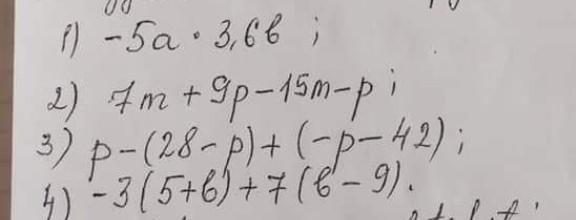 1) -5a · 3,6b ;
2) 7m + 9p - 15m - p ;
3) p - (28 - p) + (-p - 42) ;
4) -3(5+b) + 7(b - 9).